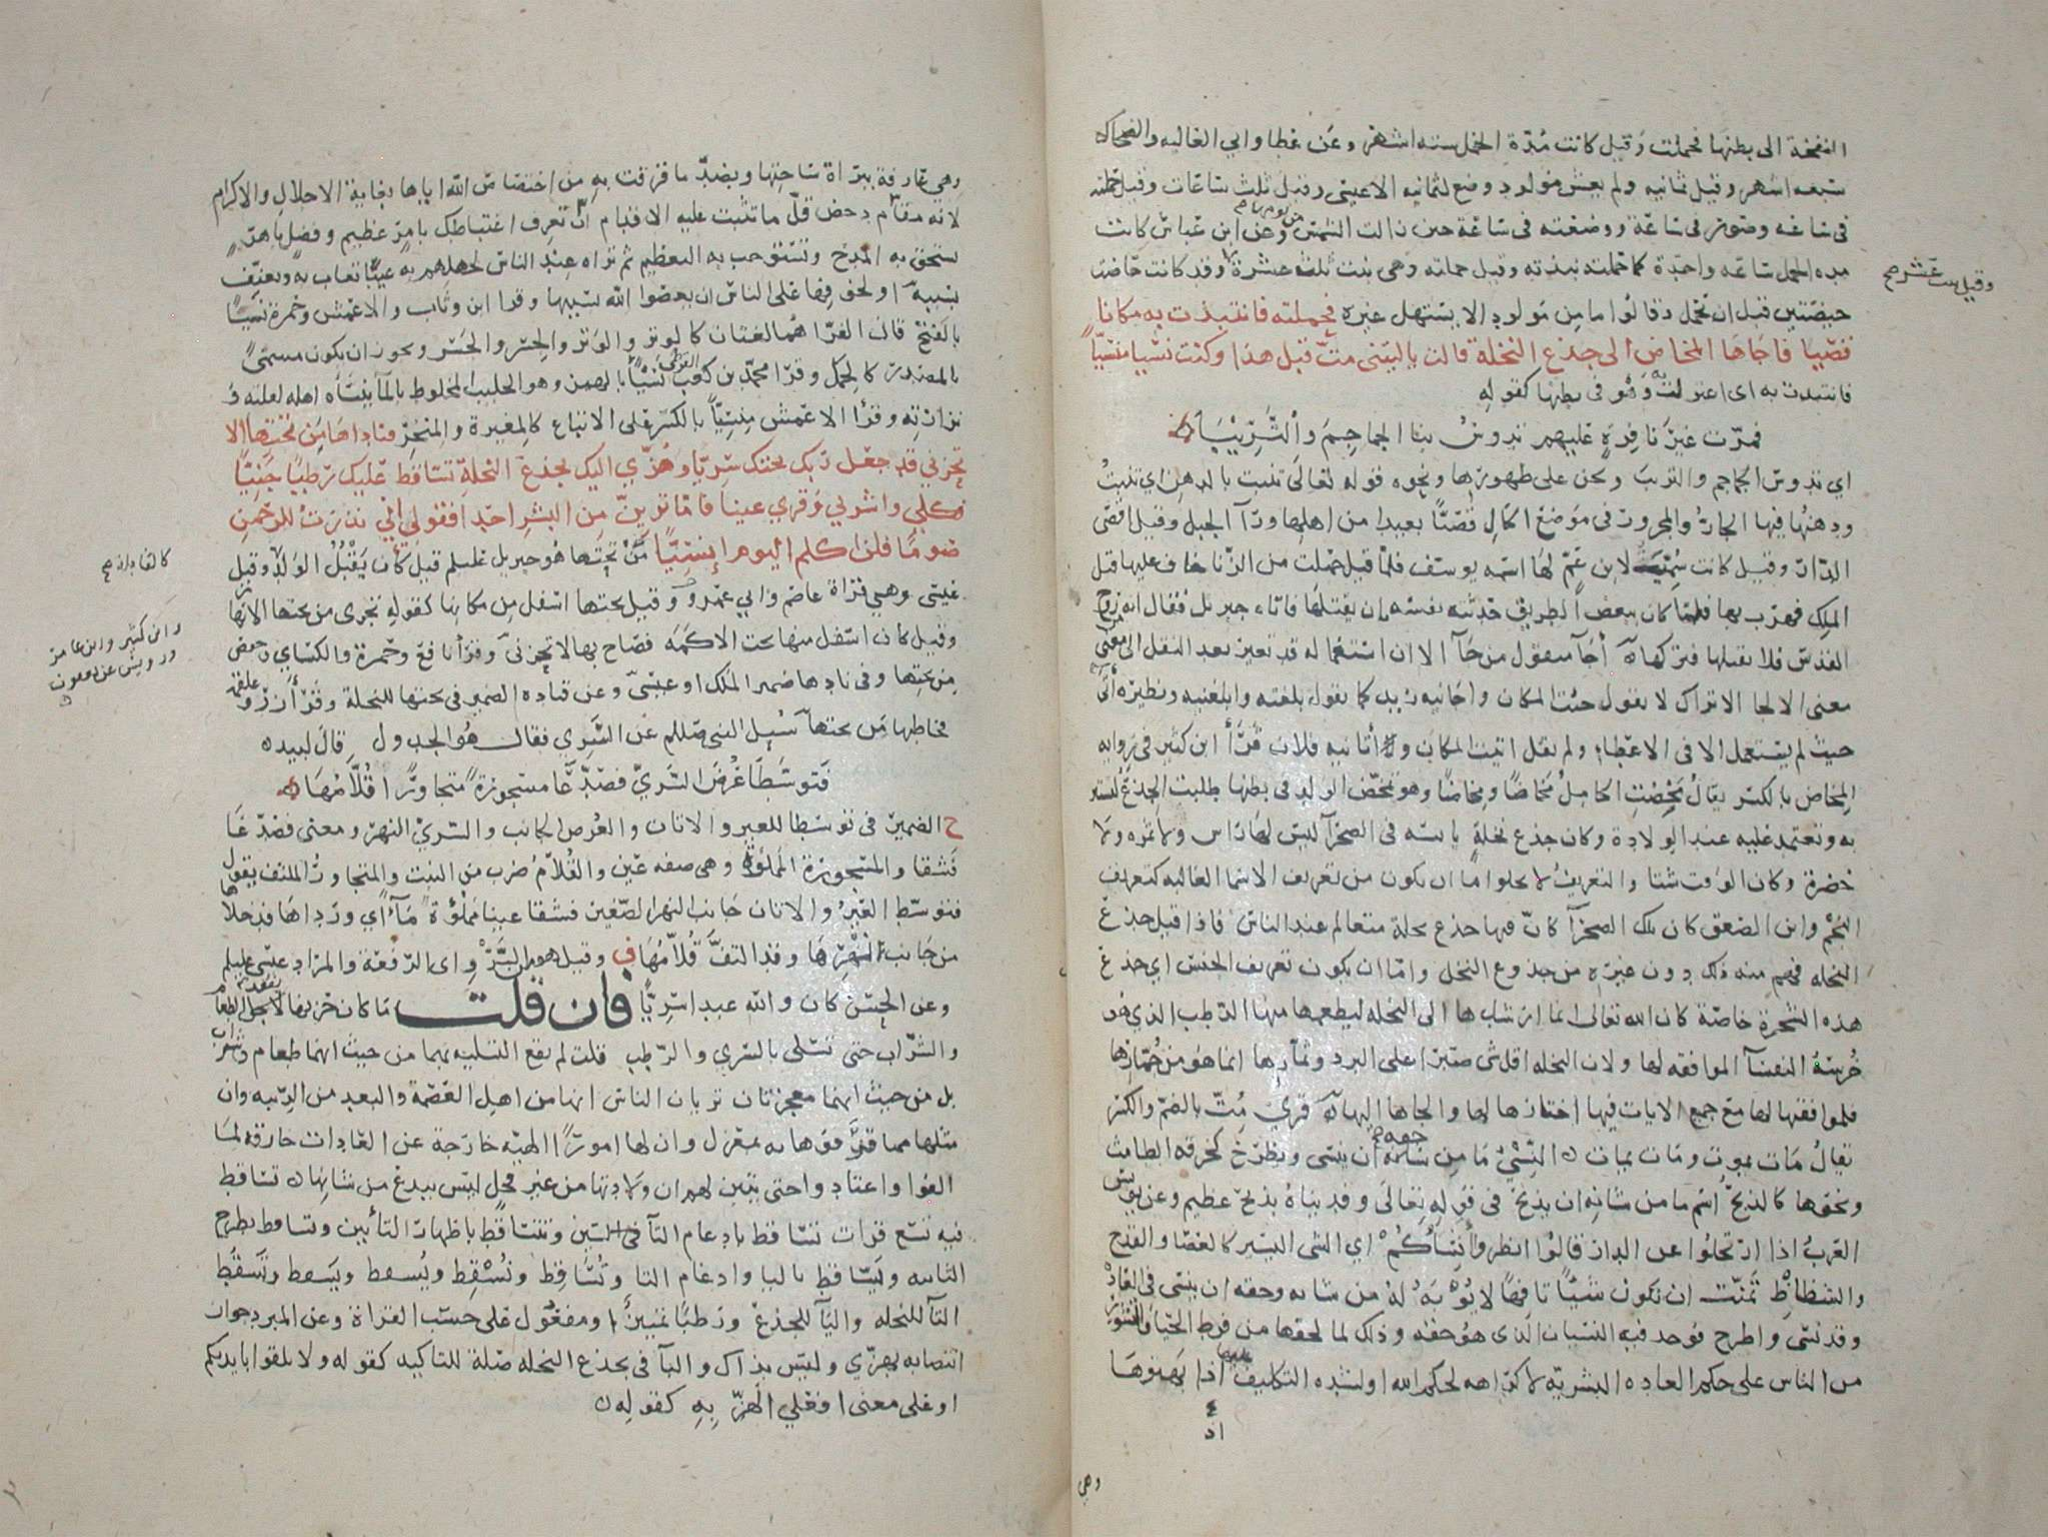 النفخة الى بطنها فحملت وقيل كانت مدة الحمل ستة اشهر وعن عطا وابي العاليه والضحاك
سبعه اشهر وقيل ثمانيه ولم يعش مولود وضع لثمانيه الا عيسى وقيل ثلث ساعات وقيل حملته
في ساعه وصور في ساعة ووضعته في ساعة حين زالت الشمس من يومها وعن ابن عباس كانت
مده الحمل ساعه واحدة كما حملته نبذته وقيل حملته وهي بنت ثلث عشرة وقد كانت حاضت
وقيل بنت عشر صح
حيضتين قبل ان تحمل وقالوا ما من مولود الا يستهل غيره فحملته فانتبذت به مكانا
قصيا فاجاها المخاض الى جذع النخلة قالت ياليتني مت قبل هذا وكنت نسيا منسيا
فانتبذت به اى اعتزلت وهو في بطنها كقوله
فمرت غير نافرة عليهم تدوس بنا الجماجم والتريبا
اي تدوس الجماجم والتريب ونحن على ظهورها ونحوه قوله تعالى تنبت بالدهن اي تنبت
ودهنها فيها الجار والمجرور في موضع الحال قصيا بعيدا من اهلها ورآ الجبل وقيل اقصى
الدار وقيل كانت سميت لابن عم لها اسمه يوسف فلما قيل حملت من الزنا خاف عليها قتل
الملك فهرب بها فلما كان ببعض الطريق حدثته نفسه بان يقتلها فاتاه جبريل فقال انه من روح
القدس فلا تقتلها فتركها اجآ منقول من جآ الا ان استعماله قد تغير بعد النقل الى معنى
معنى الالجا الا تراك لا تقول جئت المكان واجانيه زيد كما تقول بلغته وابلغنيه ونظيره آتى
حيث لم يستعمل الا في الاعطاء ولم تقل اتيت المكان وآتانيه فلان قرأ ابن كثير في روايه
المخاض بالكسر يقال مخضت الحامل مخاضا ومخاضا وهو تمخض الولد في بطنها طلبت الجذع لتستتر
به وتعتمد عليه عند الولادة وكان جذع نخلة يابسه في الصحرآ ليس لها راس ولا ثمره ولا
خضرة وكان الوقت شتا والتعريف لا يخلوا اما ان يكون من تعريف الاسما الغالبه كتعريف
النجم وابن الصعق كان تلك الصحرآ كان فيها جذع نخلة متعالم عند الناس فاذا قيل جذع
النخله فهم منه ذلك دون غيره من جذوع النخل واما ان يكون تعريف الجنس اي جذع
هذه الشجرة خاصة كان الله تعالى انما ارشدها الى النخله ليطعمها منها الرطب الذي هو
خرسة النفسآ الموافقه لها ولان النخله اقل شى صبرا على البرد وثمارها انما هو من جمارها
فلموافقتها لها مع جمع الايات فيها اختارها لها والجاها اليها قرى مت بالضم والكسر
يقال مات يموت ومات يمات النسي ما من حقه ان ينسى ويطرح كخرقه الطامث
ونحوها كالذبح اسم ما من شانه ان يذبح في قوله تعالى وفديناه بذبح عظيم وعن يونس
العرب اذا ارتحلوا عن الدار قالوا انظروا أنسآكم اي الشى اليسير كالعصا والقدح
والشظاظ تمنت ان تكون شيئا تافها لا يؤبه له من شانه وحقه ان ينسى في العادة
وقد نسى واطرح فوجد فيه النسيان الذى هو حقه وذلك لما لحقها من فرط الحيا والتستر
من الناس على حكم العاده البشريه لا كراهه لحكم الله او لشده التكليف عليها اذا بهتوها
وهي
وهي عارفة ببرآة ساحتها وبضد ما قرفت به من اختصاص الله اياها بغاية الاجلال والاكرام
لانه مقام دحض قل ما تثبت عليه الاقدام ان تعرف اغتباطك بامر عظيم وفضل باهر
تستحق به المدح وتستوجب به التعظيم ثم تراه عند الناس لجهلهم به عيبا تعاب به وتعنف
بسببه او لخوفها على الناس ان يعصوا الله بسببها وقرا ابن وثاب والاعمش وحمزة نسيا
بالفتح قال الفرا هما لغتان كالوتر والوتر والجسر والجسر ويجوز ان يكون مسمى
بالمصدر كالحمل وقرا محمد بن كعب القرظي نسئا بالهمز وهو الحليب المخلوط بالمآ ينسأه اهله لقلته و
نزارته وقرأ الاعمش منسيا بالكسر على الاتباع كالمغيرة والمنخر فناداها من تحتها الا
تحزني قد جعل ربك تحتك سريا وهزي اليك بجذع النخلة تساقط عليك رطبا جنيا
فكلي واشربي وقري عينا فاما ترين من البشر احدا فقولي اني نذرت للرحمن
صوما فلن اكلم اليوم إنسيا من تحتها هو جبريل عليلم قيل كان يقبل الولد وقيل
كالقابله صح
عيسى وهي قراة عاصم وابي عمرو وقيل تحتها اسفل من مكانها كقوله تجرى من تحتها الانهار
وابن كثير وابن عامر
ورويس عن يعقوب
وقيل كان اسفل منها تحت الاكمه فصاح بها لا تحزني وقرأ نافع وحمزة والكساي وحفص
من تحتها وفي ناداها ضمير الملك او عيسى وعن قتاده الضمير في تحتها للنخلة وقرأ زر وعلقمه
فخاطبها من تحتها سيل النبي صللم عن السري فقال هو الجدول قال لبيد
فتوسطا عرض السري فصدعا مسجورة متجاورا اقلامها
ح الضمير في توسطا للعير والاتان والعرض الجانب والسري النهر ومعنى فصدعا
فشقا والمسجورة المملوة وهي صفه عين والقلام ضرب من النبت والمتجاور الملتف يقول
فتوسط العير والاتان جانب النهر الصغير فشقا عينا مملوة مآ اي ورداها فدخلا
من جانب نهرها وقد التف قلامها وقيل هو من السرو اى الرفعة والمراد عيسى عليلم
وعن الحسن كان والله عبدا سريا فان قلت ما كان حزنها لفقد الطعام
والشراب حتى تسلى بالسري والرطب قلت لم يقع التسليه بهما من حيث انهما طعام وشراب
بل من حيث انهما معجزتان تريان الناس انها من اهل العصمة والبعد من الريبه وان
مثلها مما قرفوها به بمعزل وان لها امورا الهيه خارجة عن العادات خارقه لما
الفوا واعتادوا حتى يتبين لهم ان ولادتها من غير فحل ليس ببدع من شانها تساقط
فيه تسع قرات تساقط بادغام التآ في السين وتتساقط باظهار التأين وتساقط بطرح
الثانيه ويساقط باليا وادغام التا وتساقط وتسقط ويسقط وتسقط ويسقط
التآ للنخله واليآ للجذع ورطبا تمييز او مفعول على حسب القراة وعن المبرد جواز
انتصابه بهزي وليس بذاك والبآ في بجذع النخله صلة للتاكيد كقوله ولا تلقوا بايديكم
او على معنى افعلي الهز به كقوله